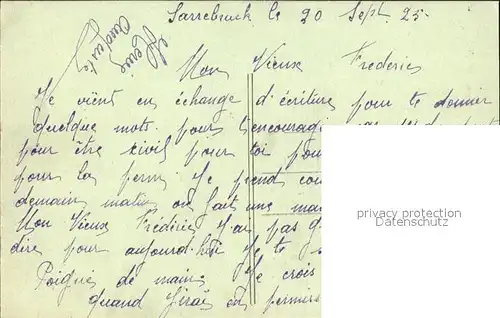 Sarrebruck le 20 Sept. 25.
Mon Vieux Frederic
Je vient en échange d'écriture pour te donner
quelque mots. pour t'encourager
pour être civil pour toi pour
pour la perm. Je prend
demain matin on fait une
Mon Vieux Frédéric J'ai pas
dire pour aujourd-hui Je te
Poignée de mains Je crois
quand J'irai en permis
privacy protection
Datenschutz